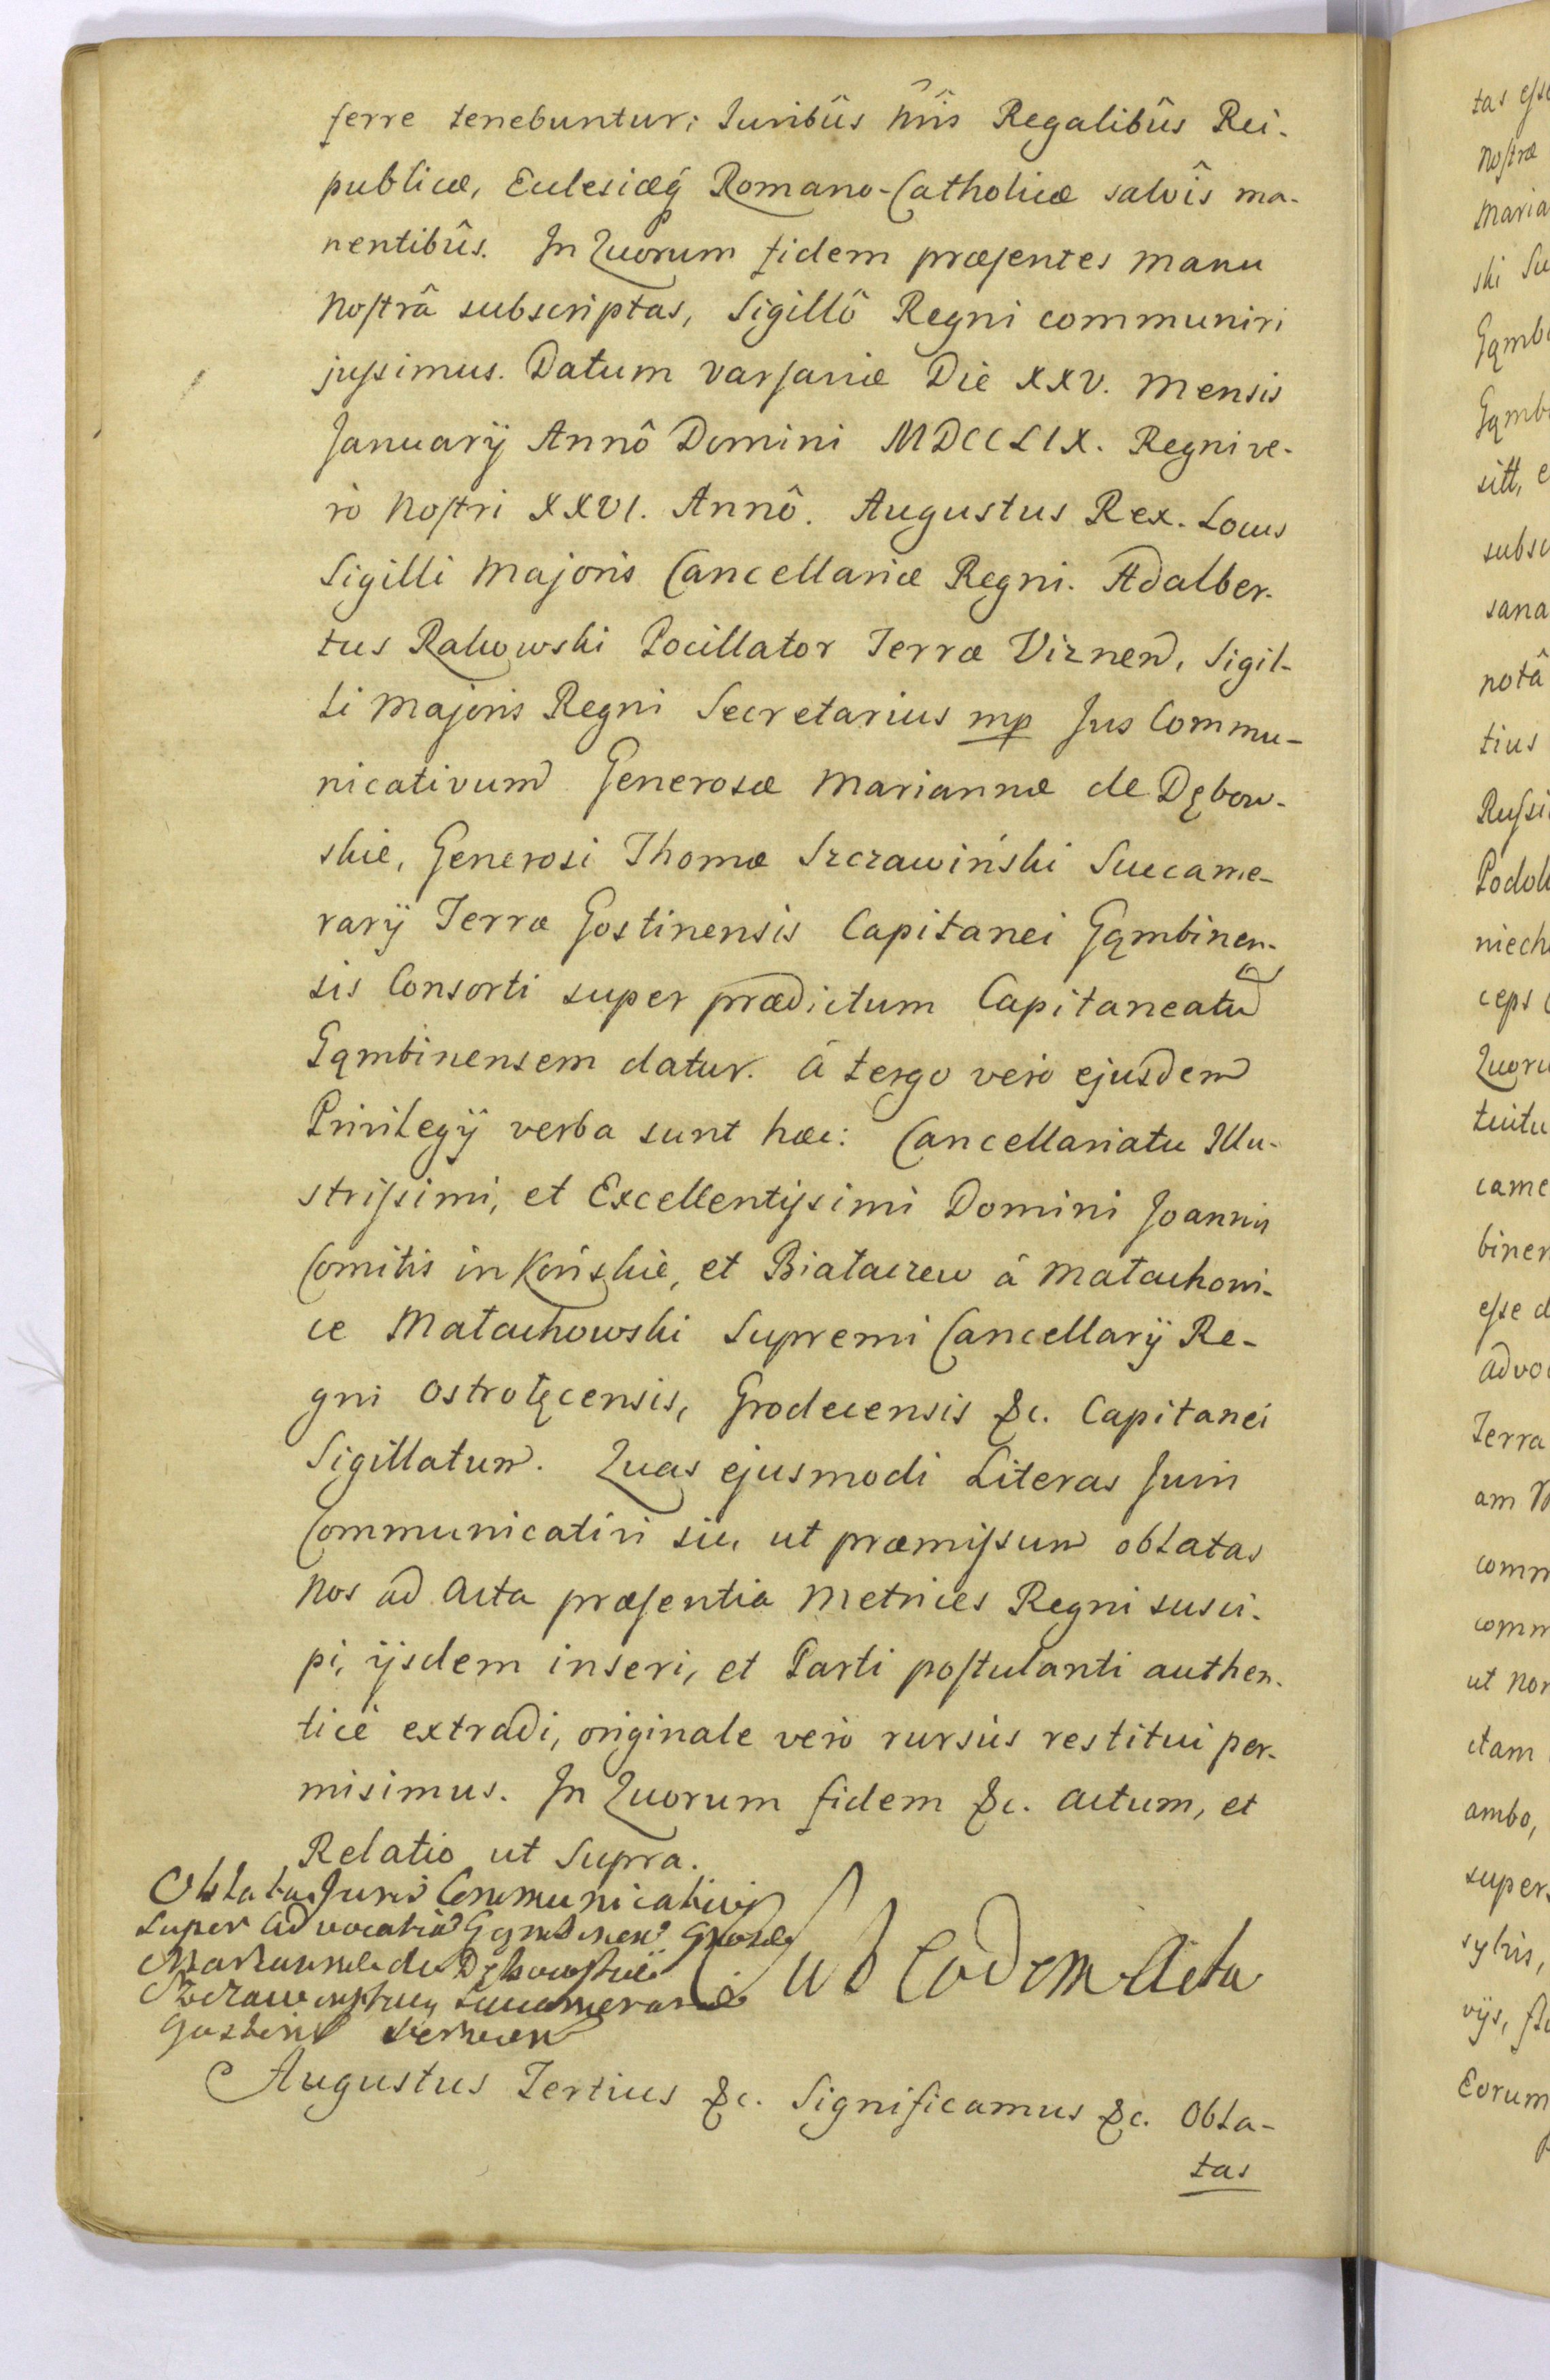 ferre tenebuntur; Juribûs Nr̃is Regalibûs Rei-
publicæ, Ecclesiæq̃ Romano-Catholicæ salvîs ma-
nentibûs. In Quorum fidem præsentes Manu
Nostrâ subscriptas, Sigillô Regni communiri
jussimus. Datum Varsaviæ Die XXV. Mensis
Januarÿ Annô Domini MDCCLIX. Regni ve-
rò Nostri XXVI. Annô. Augustus Rex. Locus
Sigilli Majoris Cancellariæ Regni. Adalber-
tus Rakowski Pocillator Terræ Viznen, Sigil-
li Majoris Regni Secretarius mp Jus Commu-
nicativum Generosæ Mariannæ de Dębow-
skie, Generosi Thomæ Szczawiński Succame-
rarÿ Terræ Gostinensis Capitanei Gąmbinen-
sis Consorti super prædictum Capitaneatu
Gąmbinensem datur. à tergo verò ejusdem
Privilegÿ verba sunt hæc: Cancellariatu Illu-
strissimi, et Excellentissimi Domini Joannis
Comitis in Końskie, et Białaczew à Małachowi-
ce Małachowski Supremi Cancellarÿ Re-
gni Ostrołęcensis, Grodecensis &c. Capitanei
Sigillatum. Quas ejusmodi Literas Juris
Communicativi sic, ut præmissum oblatas
Nos ad Acta præsentia Metrices Regni susci-
pi, ÿsdem inseri, et Parti postulanti authen-
ticè extradi, originale verò rursùs restitui per-
misimus. In Quorum fidem &c. Actum, et
Relatio ut Supra.
Oblata Juris Communicativi
super Advocatia Gąmbinen Gnosæ
Mariannæ de Dębowskie
Szczawinskiey Succamerariæ
Gostinen
Sub Eodem Actu
Augustus Tertius &c. Significamus &c. Obla-
tas